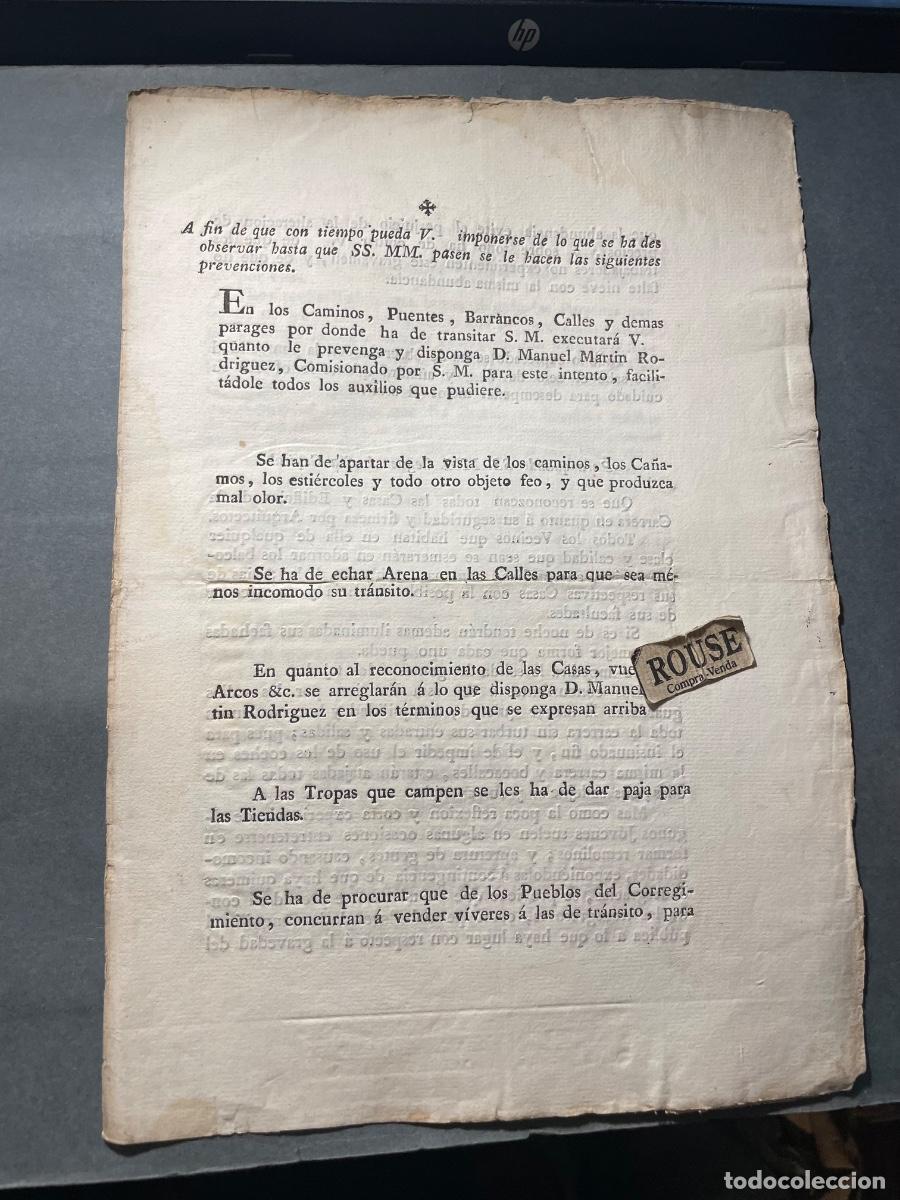 hp
✠
A fin de que con tiempo pueda V. imponerse de lo que se ha des
observar hasta que SS. MM. pasen se le hacen las siguientes
prevenciones.
En los Caminos, Puentes, Barràncos, Calles y demas
parages por donde ha de transitar S. M. executará V.
quanto le prevenga y disponga D. Manuel Martin Ro-
driguez, Comisionado por S. M. para este intento, facili-
tádole todos los auxilios que pudiere.
Se han de apartar de la vista de los caminos, los Caña-
mos, los estiércoles y todo otro objeto feo, y que produzca
mal olor.
Se ha de echar Arena en las Calles para que sea mé-
nos incomodo su tránsito.
En quanto al reconocimiento de las Casas, vue
Arcos &c. se arreglarán á lo que disponga D. Manuel
tin Rodriguez en los términos que se expresan arriba
A las Tropas que campen se les ha de dar paja para
las Tiendas.
Se ha de procurar que de los Pueblos del Corregi-
miento, concurran á vender víveres á las de tránsito, para
ROUSE
Compra-Venda
todocoleccion